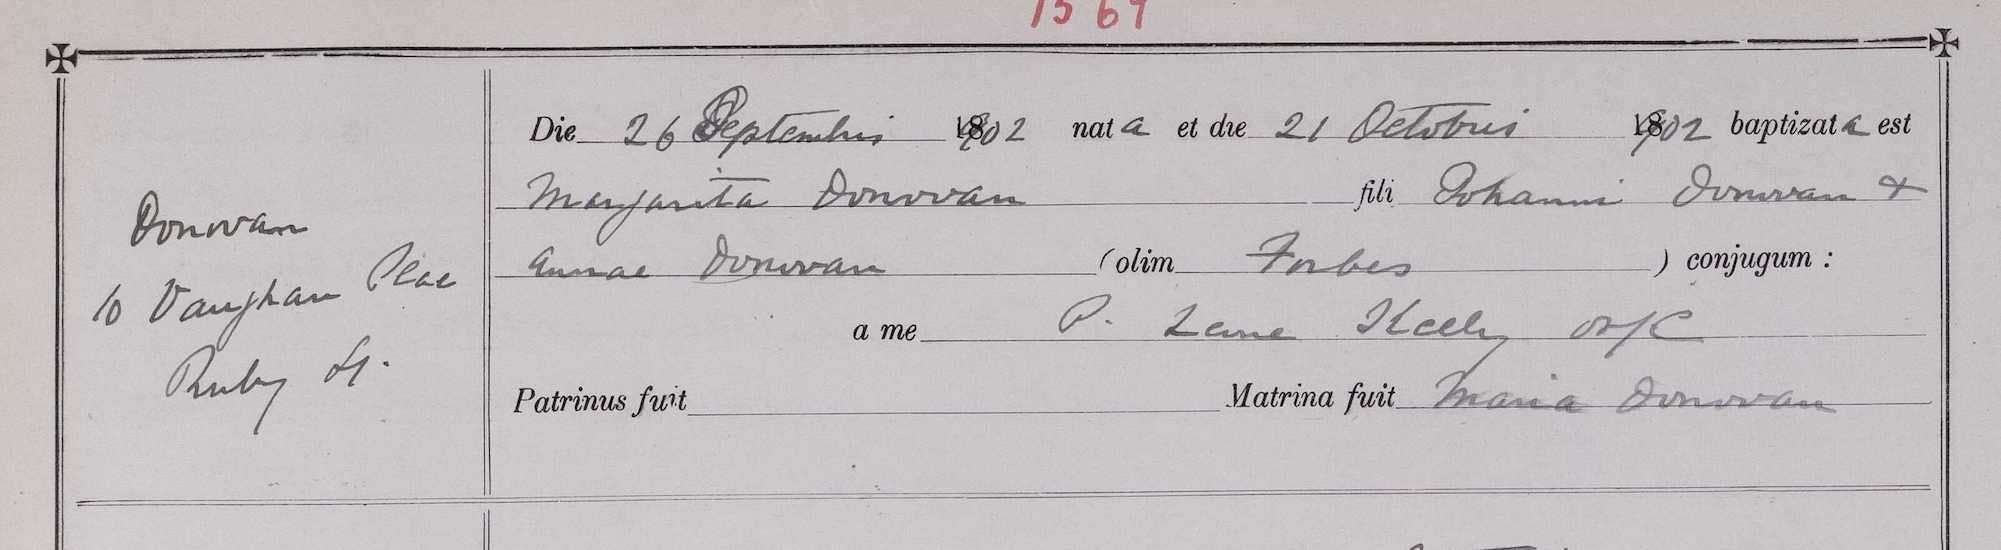 Donovan
10 Vaughan Place
Ruby St.
Die 26 Septembris 1902 nata et die 21 Octobris 1902 baptizata est
Margarita Donovan fili Johanni Donovan &
Annae Donovan (olim Forbes ) conjugum :
a me P. Kelly
Patrinus fuit Matrina fuit Maria Donovan